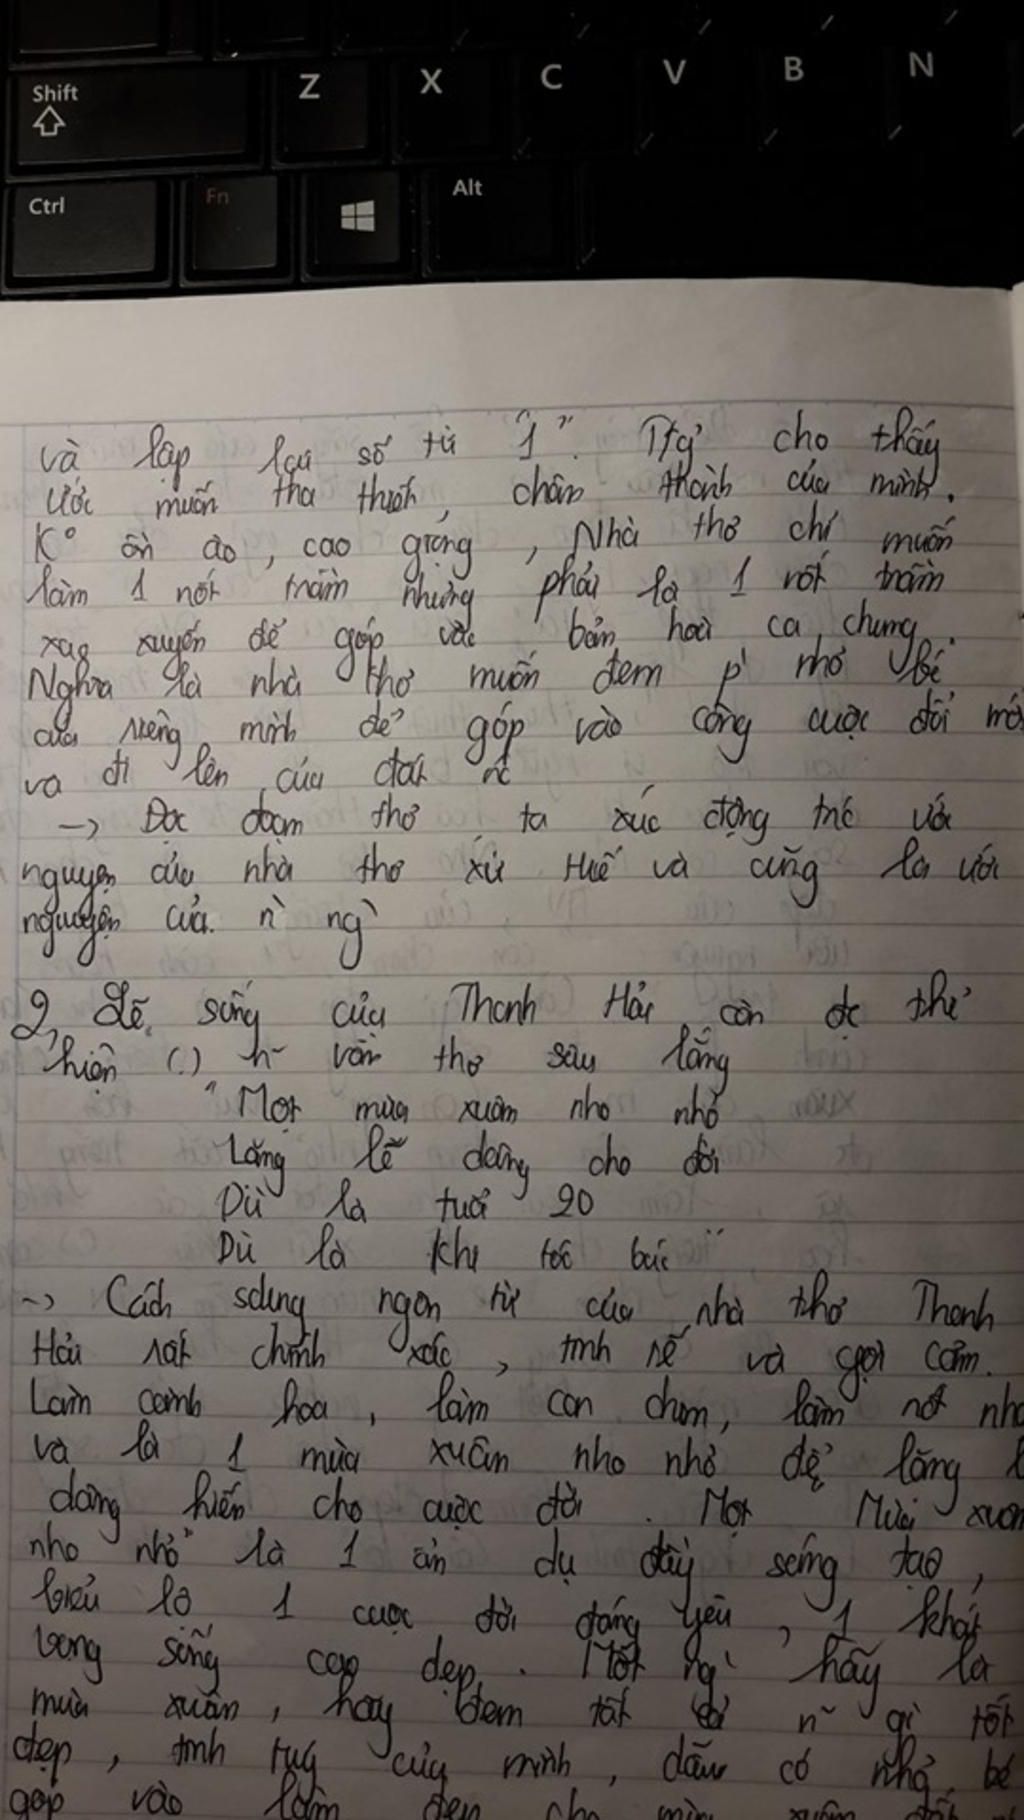 Shift Z X C V B N
Ctrl Fn Alt
và lặp lại số từ "1". T/g' cho thấy
ước muốn tha thiết, chân thành của mình.
K° ồn ào, cao giọng, Nhà thơ chỉ muốn
làm 1 nốt trầm nhưng phải là 1 nốt trầm
xao xuyến để góp vào bản hoà ca chung.
Nghĩa là nhà thơ muốn đem p' nhỏ bé
của riêng mình để góp vào công cuộc đổi mới
và đi lên của đất nc
-> Đọc đoạn thơ, ta xúc động trc ước
nguyện của nhà thơ xứ Huế và cũng là ước
nguyện của n` ng`
2, Lẽ sống của Thanh Hải còn đc thể
hiện (.) n~ vần thơ sâu lắng
"Một mùa xuân nho nhỏ
Lặng lẽ dâng cho đời
Dù là tuổi 20
Dù là khi tóc bạc"
-> Cách sdụng ngôn từ của nhà thơ Thanh
Hải rất chính xác, tinh tế và gợi cảm.
Làm cành hoa, làm con chim, làm nốt nhạc
và là 1 mùa xuân nho nhỏ để lặng l
dâng hiến cho cuộc đời. Một Mùa xuân
nho nhỏ" là 1 ẩn dụ đầy sáng tạo,
biểu lộ 1 cuộc đời đáng yêu, 1 khát
vọng sống cao đẹp. Mỗi ng` hãy là
mùa xuân, hãy đem tất cả n~ gì tốt
đẹp, tinh tuý của mình, dẫu có nhỏ bé
góp vào làm đẹp cho mùa xuân đất